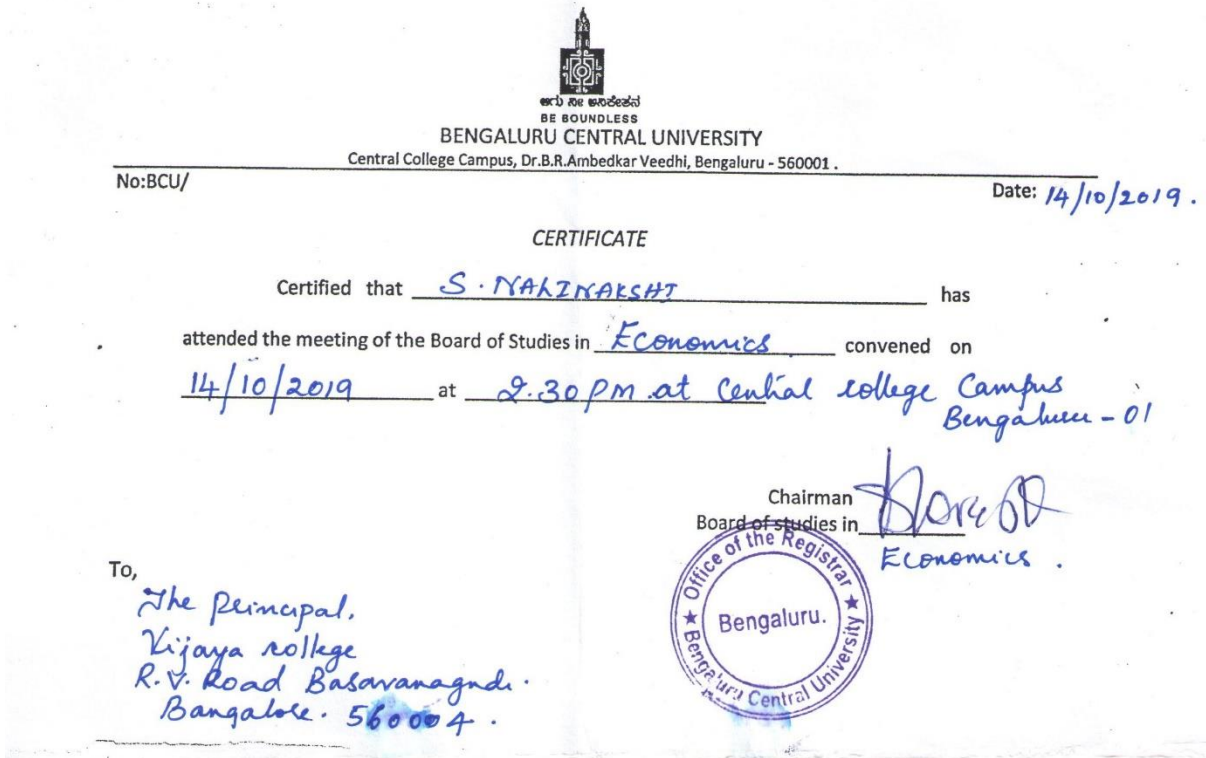 ಆಗು ನೀ ಅನಿಕೇತನ
BE BOUNDLESS
BENGALURU CENTRAL UNIVERSITY
Central College Campus, Dr.B.R.Ambedkar Veedhi, Bengaluru - 560001 .
No:BCU/
Date: 14/10/2019 .
CERTIFICATE
Certified that S. NALINAKSHI has
attended the meeting of the Board of Studies in Economics convened on
14/10/2019 at 2.30 pm at Central College Campus
Bengaluru - 01
Chairman
Board of studies in
Economics .
Office of the Registrar ★ Bengaluru Central University ★
Bengaluru.
To,
The Principal,
Vijaya College
R.V. Road Basavanagudi.
Bangalore. 560004 .